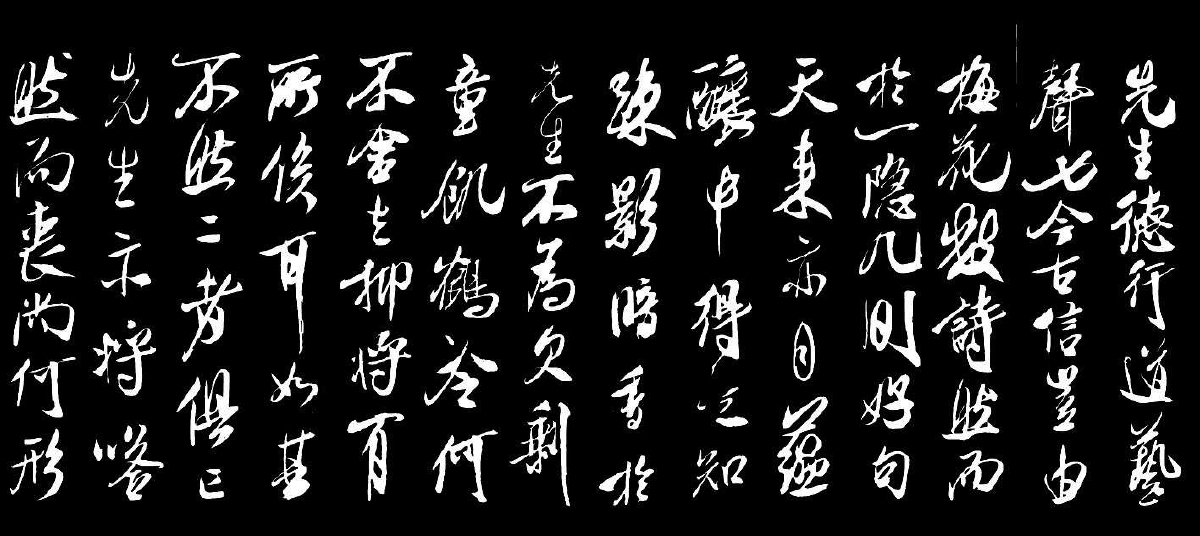 先生德行道藝
聲七今古信豈由
梅花數詩然而
於一隐几則好句
天来亦自蕴
釀中得之知
疎影暗香於
先生不為欠剩
童飢鶴冷何
不舍去抑将有
所俟耳如其
不然二者俱亡
先生亦将嗒
然而喪尚何形